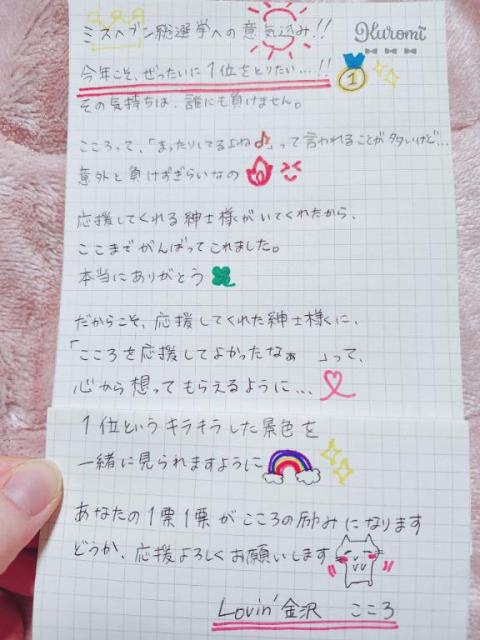 ミスヘブン総選挙への意気込み!!
Kuromi
今年こそ、ぜったいに1位をとりたい...!!
1
その気持ちは、誰にも負けません。
こころって、「まったりしてるよね♪」って言われることが多いけど...
意外と負けずぎらいなの
応援してくれる紳士様がいてくれたから、
ここまでがんばってこれました。
本当にありがとう
だからこそ、応援してくれた紳士様に、
「こころを応援してよかったなぁ 」って、
心から想ってもらえるように...
1位というキラキラした景色を
一緒に見られますように
あなたの1票1票がこころの励みになります
どうか、応援よろしくお願いします
Lovin'金沢 こころ